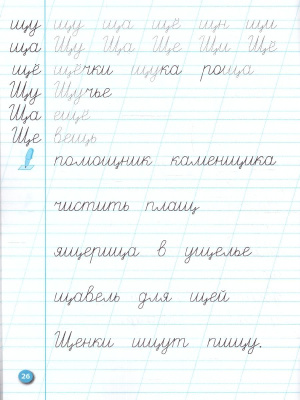 щу щу ща щё щн щм
ща Щу Ща Ще Щи Щё
щё щёчки щука роща
Щу Щучье
Ща ещё
Ще вещь
помощник каменщика
чистить плащ
ящерица в ущелье
щавель для щей
Щенки ищут пищу.
26